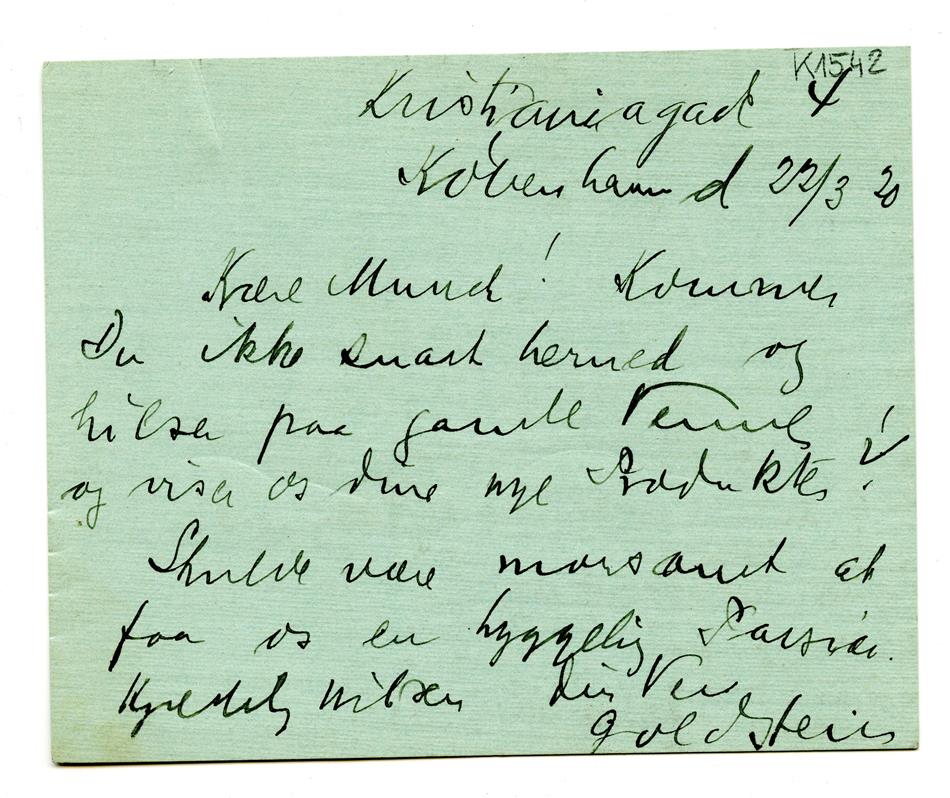 K1542
Kristianiagade 4
København d 22/3 20
Kære Munch! Kommer
Du ikke snart herned og
hilser paa gamle Venner
og viser os dine nye Produkter?!
Skulde være morsomt at
faa os en hyggelig Passiar.
Hjertelig Hilsen din Ven
Goldstein